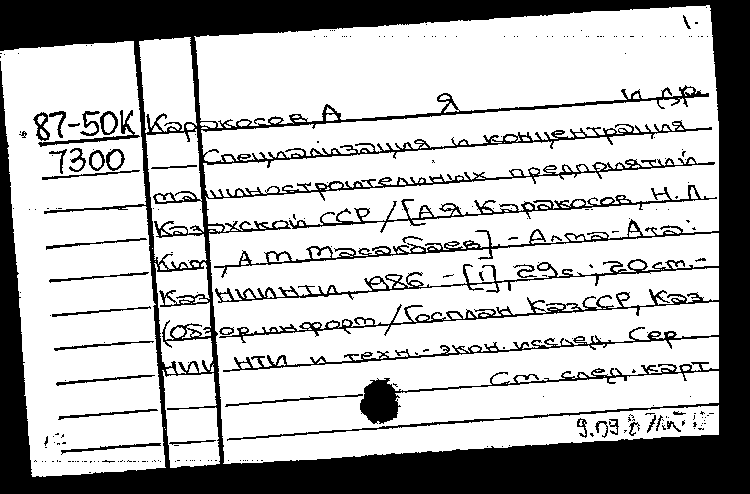 1.
87-50К Каракосов, А Я и др.
7300 Специализация и концентрация
машиностроительных предприятий
Казахской ССР / [А.Я. Каракосов, Н.Л.
Ким, А.М. Масакбаев]. - Алма-Ата:
КазНИИНТИ, 1986. - [1], 29 с.; 20 см. -
(Обзор. информ. / Госплан КазССР, Каз
НИИ НТИ и техн.-экон. исслед. Сер.
См. след. карт
9.09.87